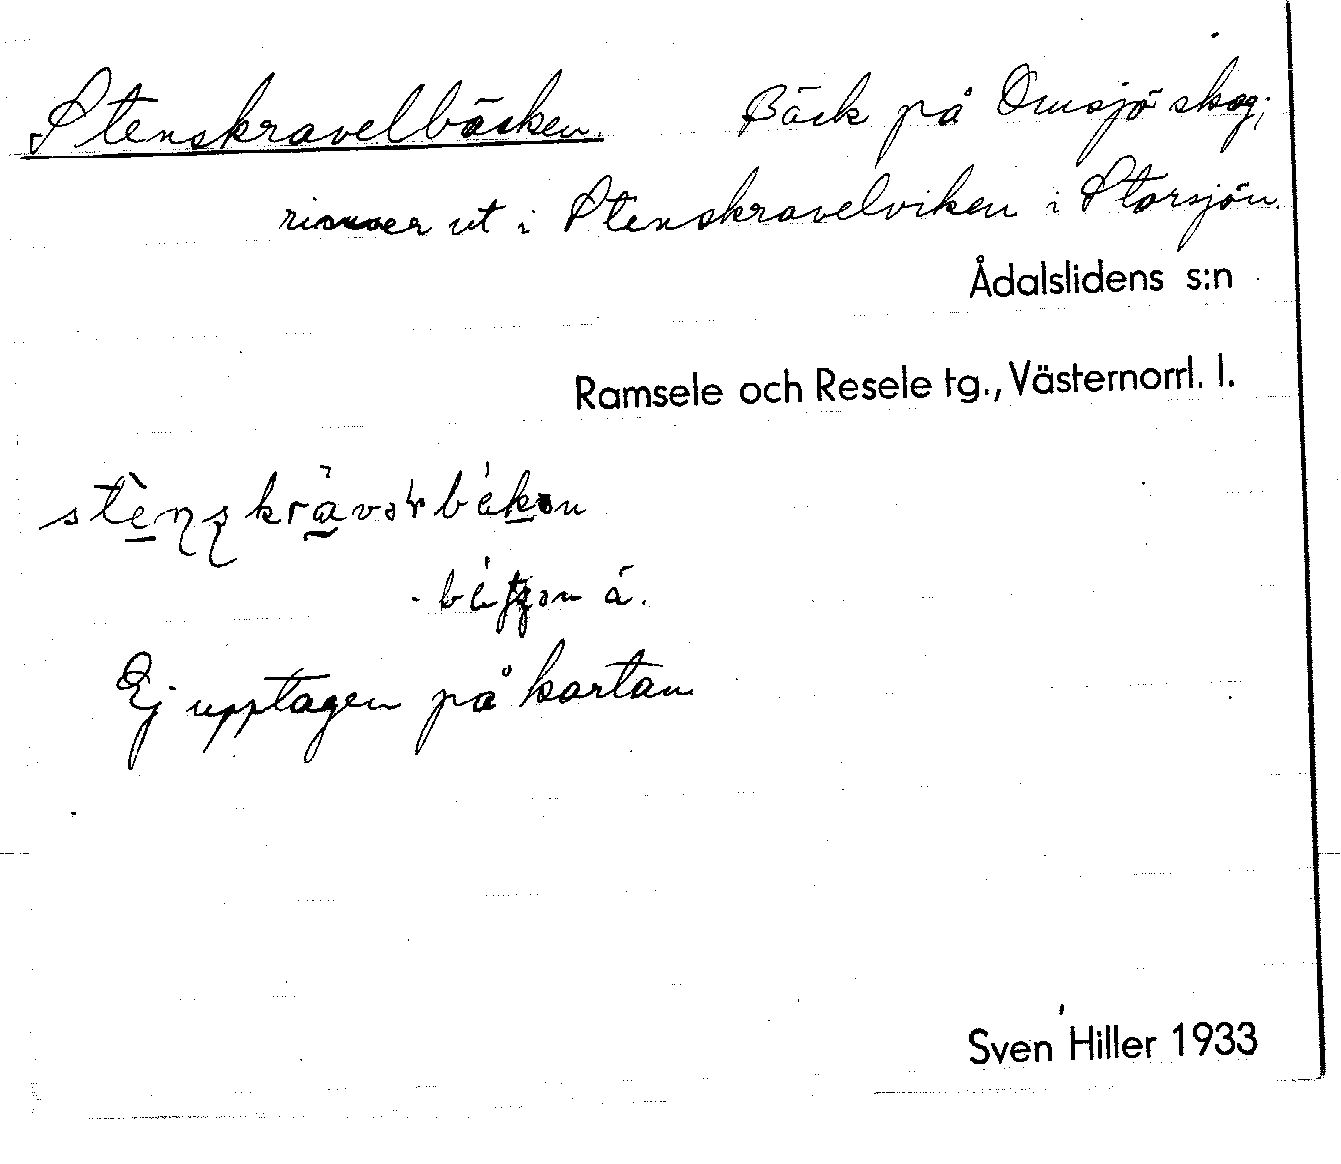 Stenskravelbäcken. Bäck på Omsjö skog;
rinner ut i Stenskravelviken i Storsjön.
Ådalslidens s:n
Ramsele och Resele tg., Västernorrl. l.
Ej upptagen på kartan
Sven Hiller 1933